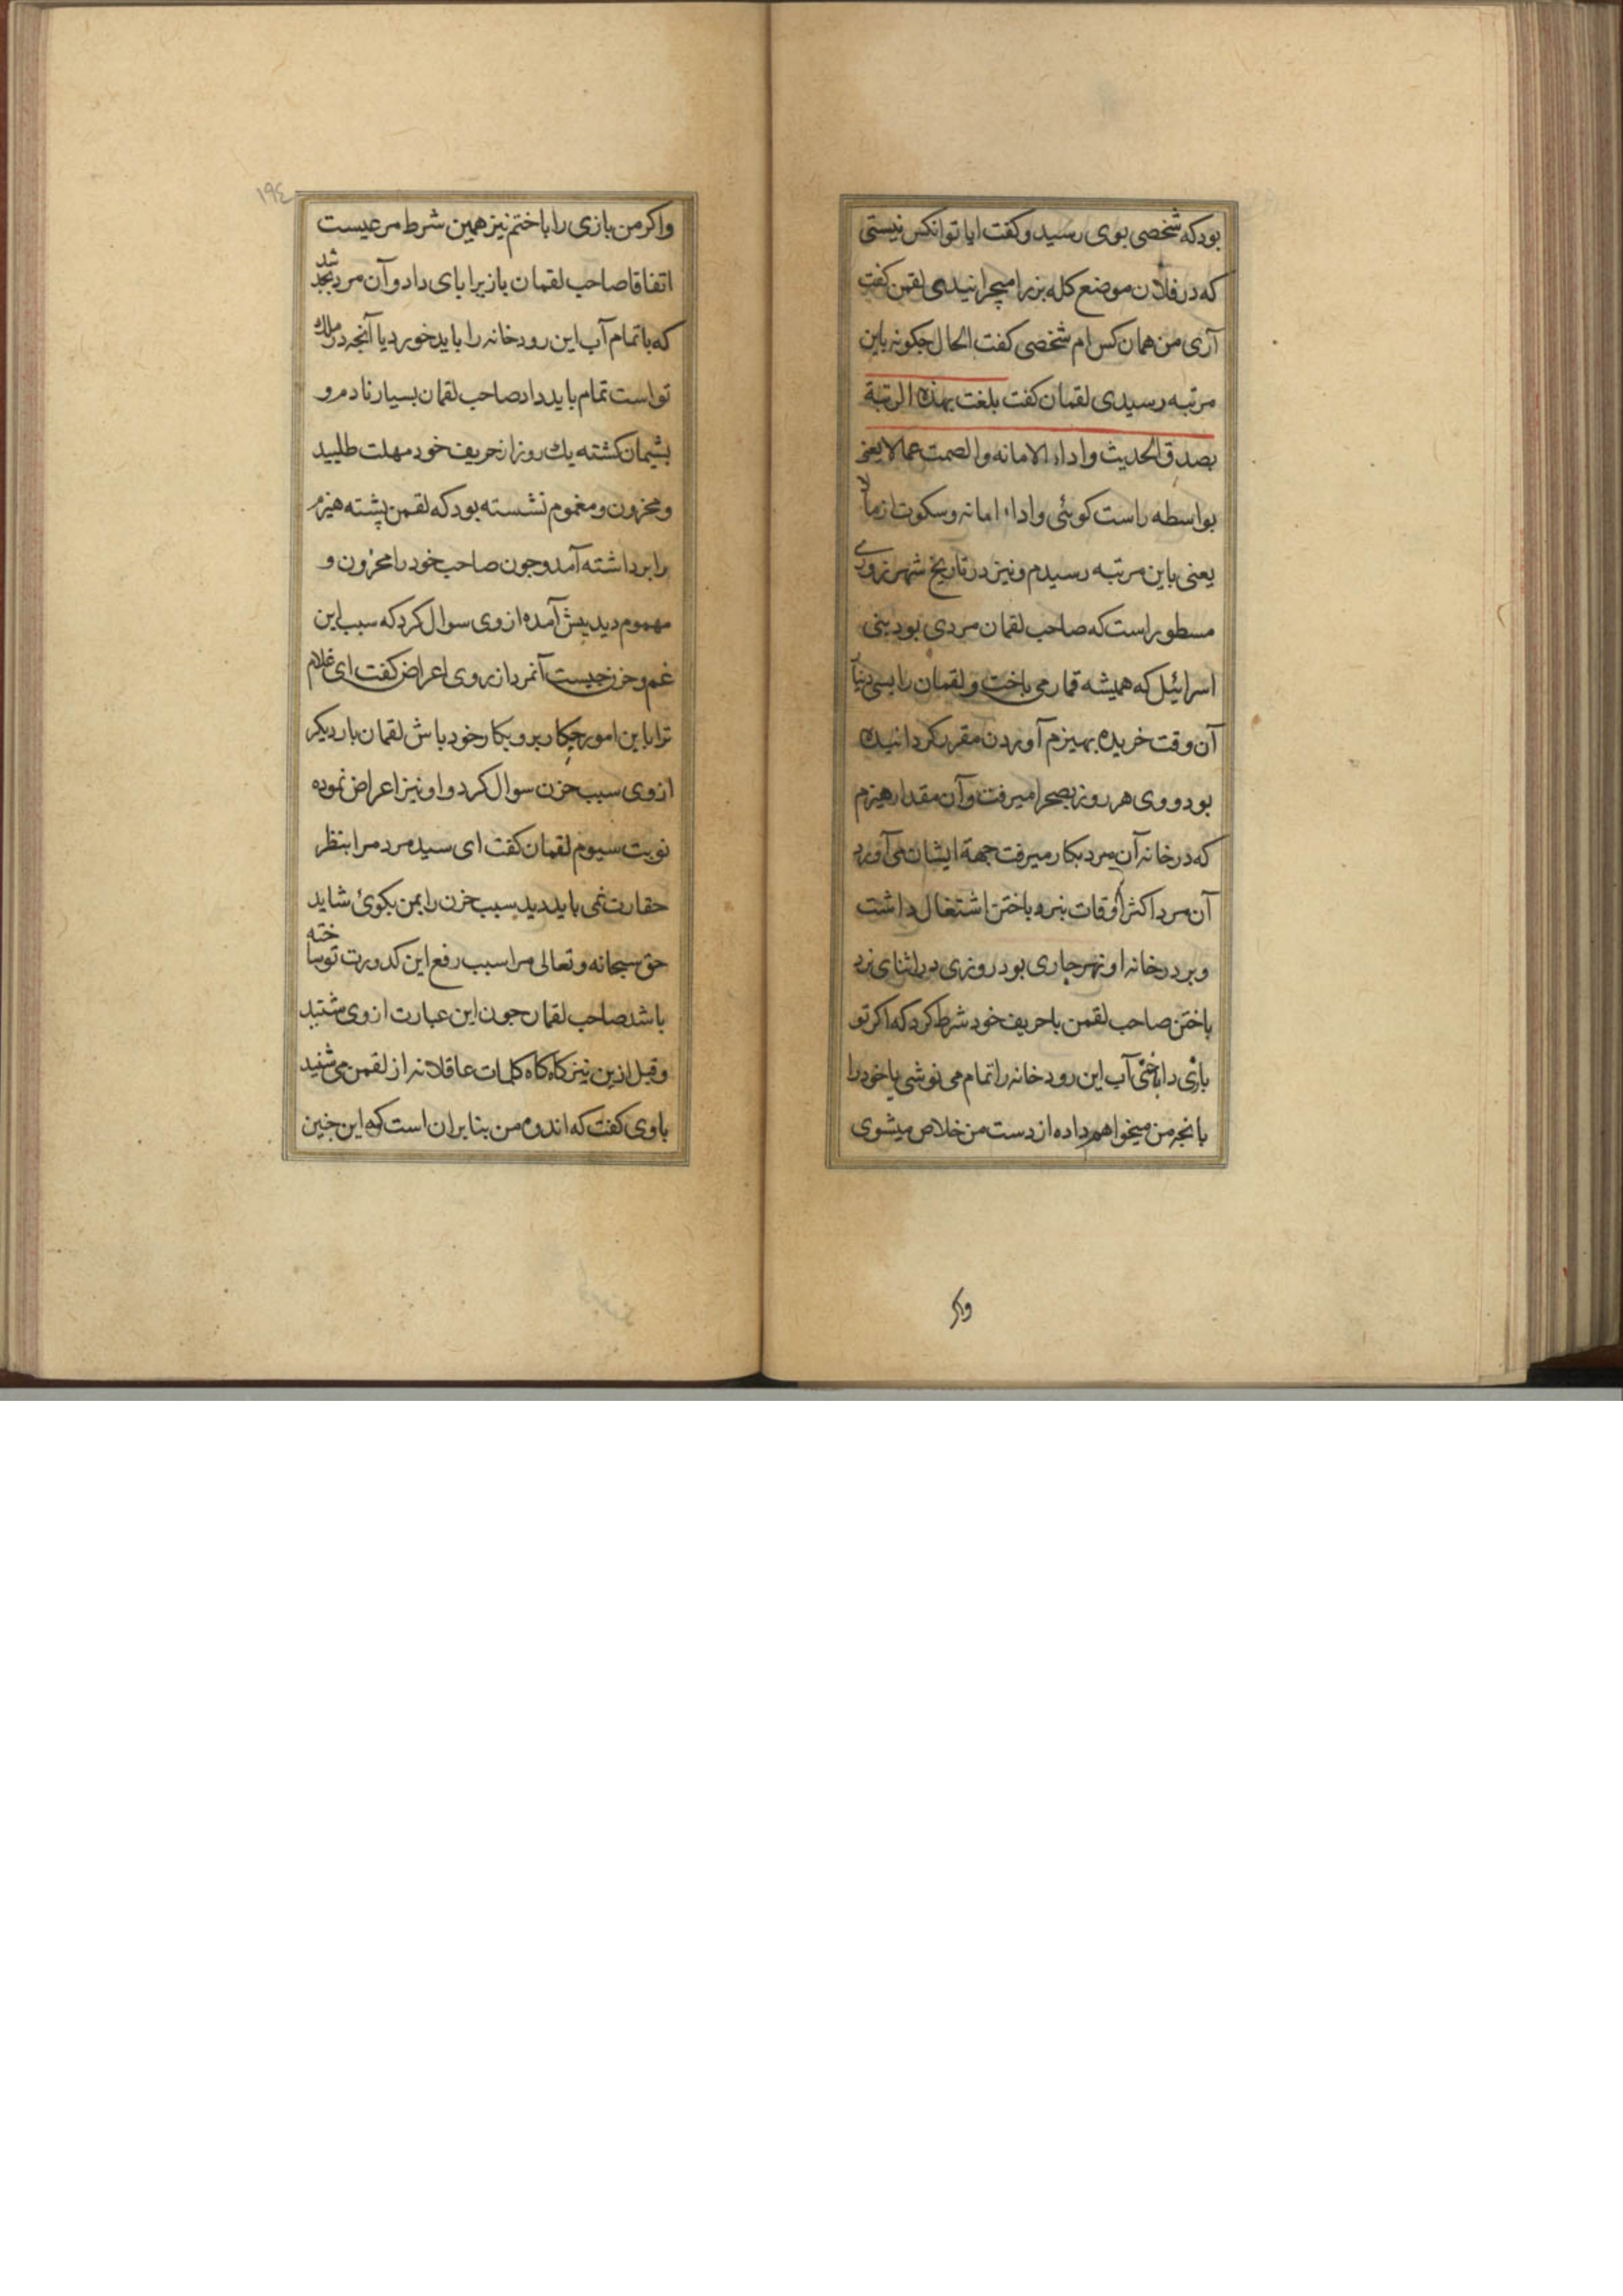 بود که شخصی بوی رسید و کفت ایا تو انکس نیستی
که در فلان موضع کله بز را میچرانیدی لقمن کفت
آری من همان کس ام شخصی کفت الحال جکونه باین
مرتبه رسیدی لقمان کفت بلغت بهذه الرتبة
بصدق الحدیث واداء الامانه والصمت عمالایعنی
بواسطه راست کوئی واداء امانه وسکوت از مالا
یعنی باین مرتبه رسیدم ونیز در تاریخ شهرزوری
مسطور است که صاحب لقمان مردی بود بنی
اسرائیل که همیشه قمار می باخت و لقمان را بسی دینار
آن وقت خریده بهیزم آوردن مقرر کردانیده
بود و وی هر روز بصحرا میرفت وآن مقدار هیزم
که در خانه آن مرد بکار میرفت جهة ایشان می آورد
آن مرد اکثر اوقات بنرد باختن اشتغال داشت
وبر در خانه او نهر جاری بود روزی در اثنای نرد
باختن صاحب لقمن با حریف خود شرط کرد که اکر تو
بازی را باختی آب این رود خانه را تمام می نوشی یا خود را
بانجه من میخواهم داده از دست من خلاص میشوی
واکر
۱۹٤
واکر من بازی را باختم نیز همین شرط مرعیست
اتفاقا صاحب لقمان بازیرا بای داد وآن مرد بجد شد
که یا تمام آب این رود خانه را باید خورد یا آنجه در ملك
تو است تمام باید داد صاحب لقمان بسیار نادم و
بشیمان کشته یك روز از حریف خود مهلت طلبید
ومحزون و مغموم نشسته بود که لقمن پشته هیزم
را برداشته آمد وجون صاحب خود را محزون و
مهموم دید پیش آمده از وی سوال کرد که سبب این
غم و حزن جیست آنمرد از روی اعراض کفت ای غلام
ترا باین امور جکار برو بکار خود باش لقمان بار دیکر
از وی سبب حزن سوال کرد و او نیز اعراض نموده
نوبت سیوم لقمان کفت ای سید مرد مرا بنظر
حقارت نمی باید دید سبب حزن را بمن بکوئ شاید
حق سبحانه وتعالی مرا سبب رفع این کدورت تو ساخته
باشد صاحب لقمان جون این عبارت از وی شنید
وقبل ازین نیز کاه کاه کلمات عاقلانه از لقمن می شنید
باوی کفت که اندوه من بنابران است که این جنین